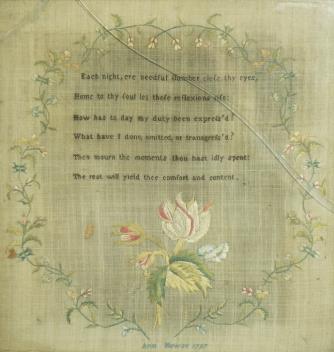 Each night, ere needful slumber close thy eyes,
Home to thy soul let these reflexions rise:
How has to day my duty been expreſs'd?
What have I done, omitted, or transgreſs'd?
Then mourn the moments thou hast idly spent:
The rest will yield thee comfort and content.
Ann 1797